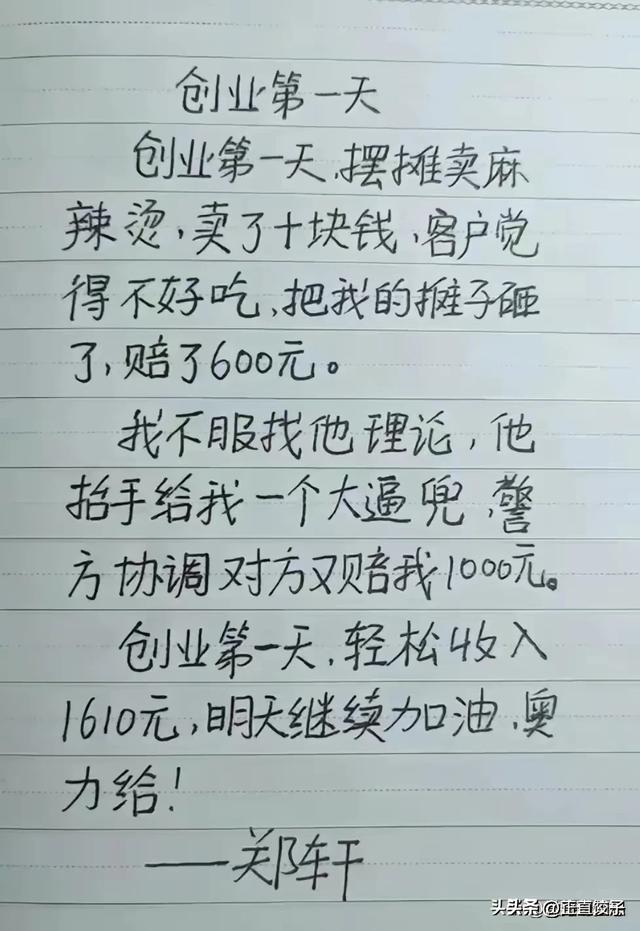 创业第一天
创业第一天,摆摊卖麻
辣烫,卖了十块钱,客户觉
得不好吃,把我的摊子砸
了,赔了600元。
我不服找他理论,他
抬手给我一个大逼兜,警
方协调对方又赔我1000元。
创业第一天,轻松收入
1610元,明天继续加油,奥
力给!
——郑轩
头条 @正直饺子